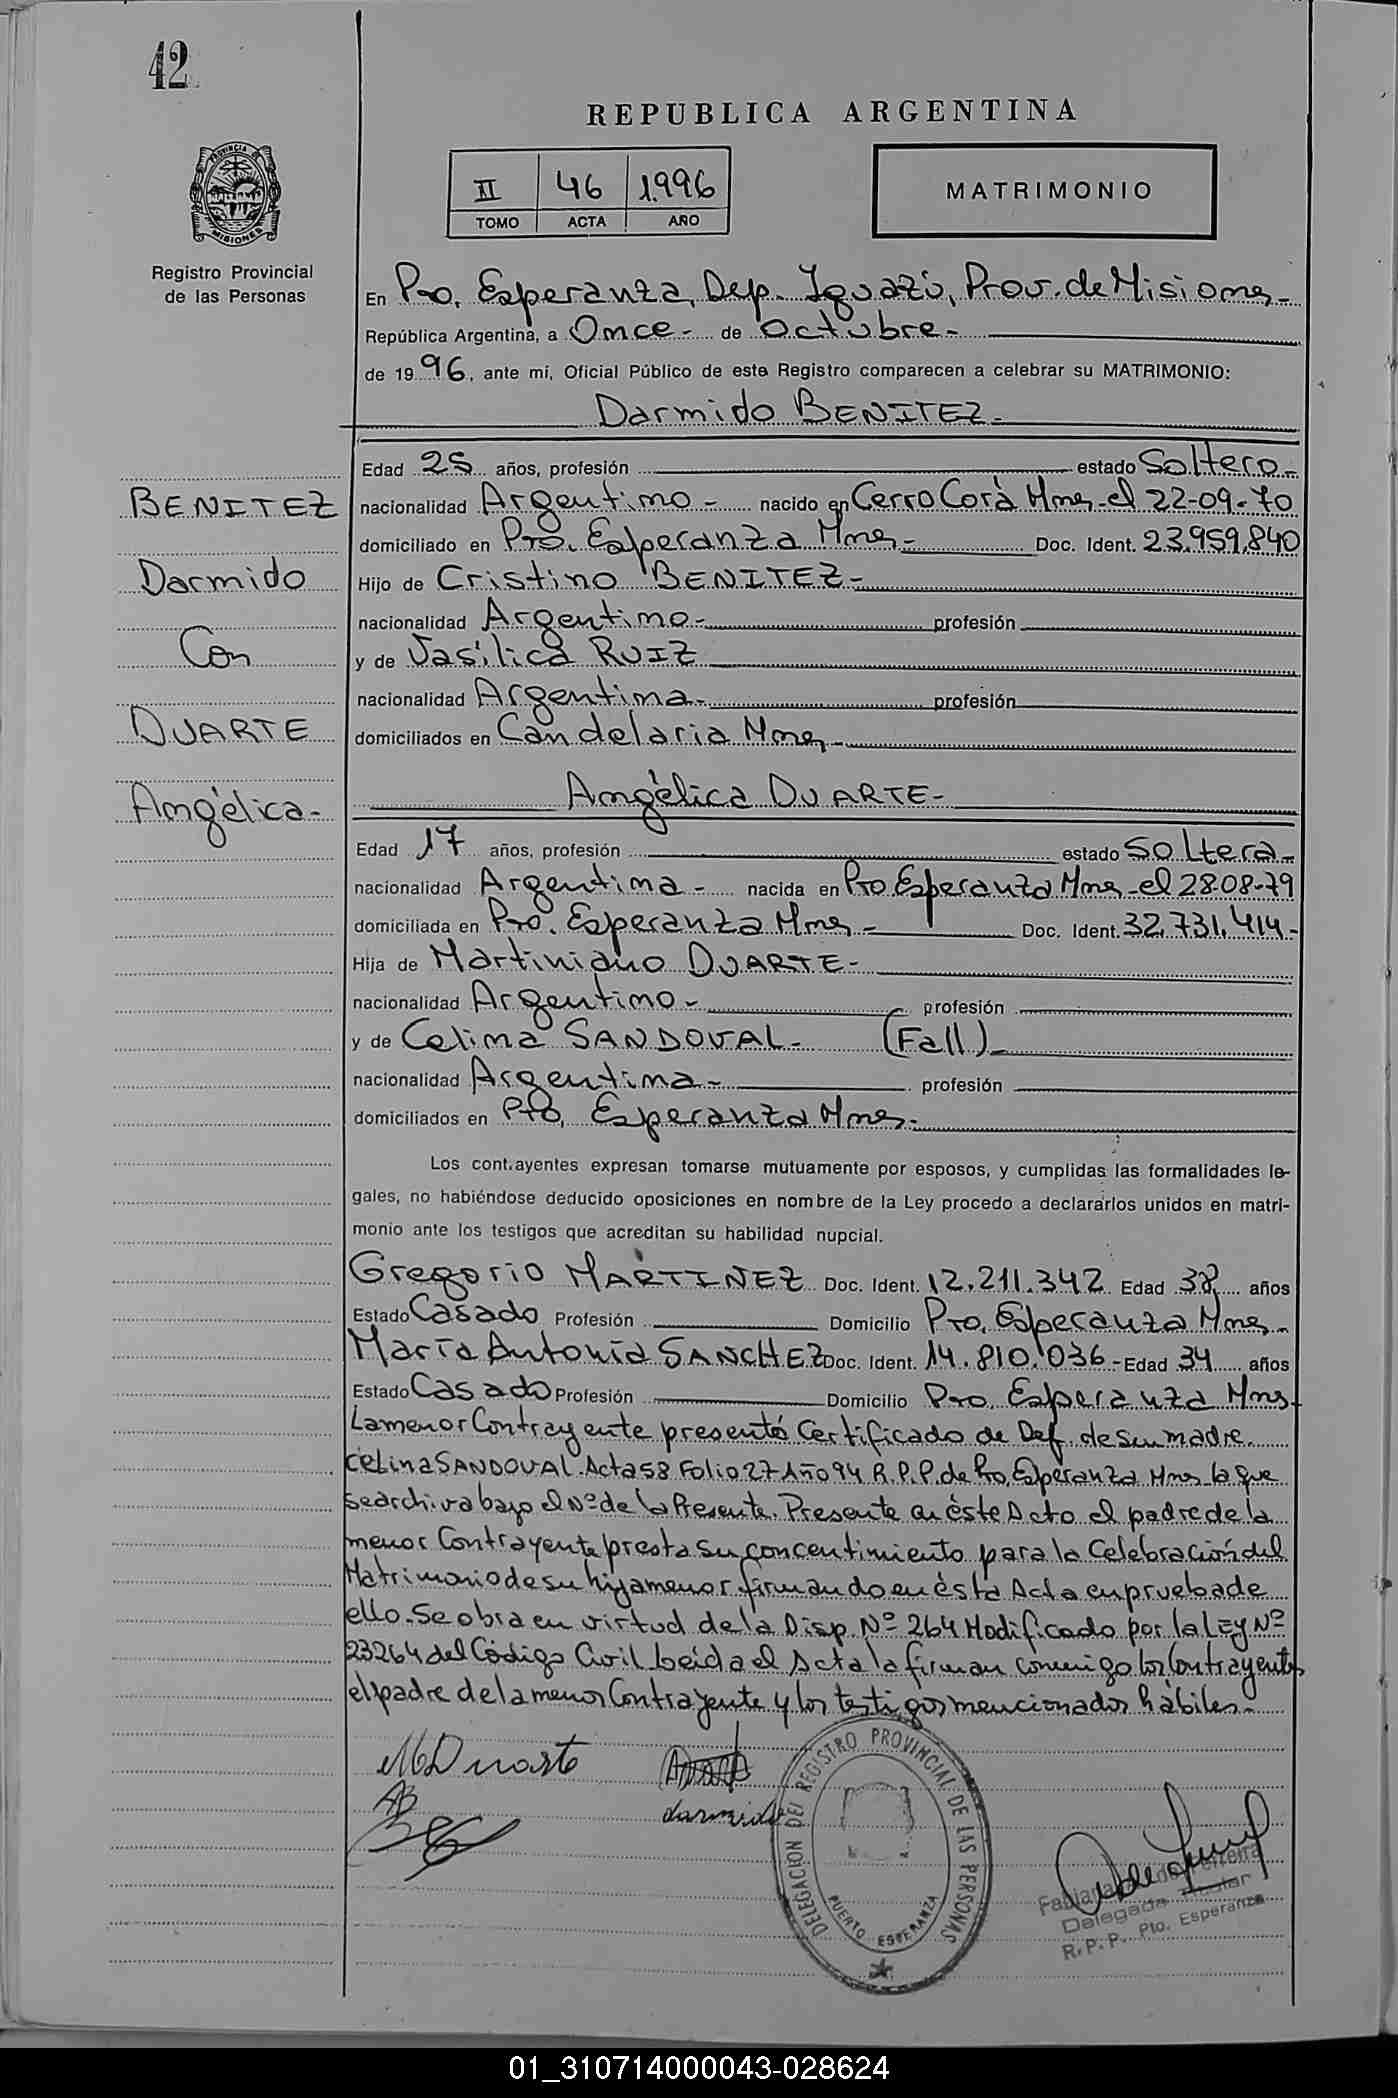 42
REPUBLICA ARGENTINA
II 46 1.996
TOMO ACTA AÑO
MATRIMONIO
PROVINCIA DE
MISIONES
Registro Provincial
de las Personas
En Pto. Esperanza, Dep. Iguazú, Prov. de Misiones-
República Argentina, a Once- de Octubre-
de 19 96, ante mí, Oficial Público de este Registro comparecen a celebrar su MATRIMONIO:
Darmido BENITEZ-
Edad 25 años, profesión estado Soltero-
BENITEZ
nacionalidad Argentino- nacido en Cerro Corà Mnes-el 22-09-70
domiciliado en Pto. Esperanza Mnes- Doc. Ident. 23.959.840
Darmido
Hijo de Cristino BENITEZ-
nacionalidad Argentino- profesión
Con
y de Vasilica RUIZ
nacionalidad Argentina- profesión
DUARTE
domiciliados en Candelaria Mnes-
Angélica-
Angélica DUARTE-
Edad 17 años, profesión estado Soltera-
nacionalidad Argentina- nacida en Pto Esperanza Mnes-el 28-08-79
domiciliada en Pto. Esperanza Mnes- Doc. Ident. 32.731.414-
Hija de Martiniano DUARTE-
nacionalidad Argentino- profesión
y de Celina SANDOVAL- (Fall)-
nacionalidad Argentina- profesión
domiciliados en Pto, Esperanza Mnes-
Los contrayentes expresan tomarse mutuamente por esposos, y cumplidas las formalidades le-
gales, no habiéndose deducido oposiciones en nombre de la Ley procedo a declararlos unidos en matri-
monio ante los testigos que acreditan su habilidad nupcial.
Gregorio MARTINEZ Doc. Ident. 12.211.342 Edad 38 años
Estado Casado Profesión Domicilio Pto. Esperanza Mnes-
María Antonia SANCHEZ Doc. Ident. 14.810.036- Edad 34 años
Estado Casado Profesión Domicilio Pto. Esperanza Mnes-
La menor Contrayente presentó Certificado de Def. de su madre
Celina SANDOVAL. Acta 58 Folio 27 Año 94 R.P.P. de Pto, Esperanza Mnes la que
se archiva bajo el Nº de la Presente. Presente en éste Acto el padre de la
menor Contrayente presta su concentimiento para la Celebración del
Matrimonio de su hija menor firmando en ésta Acta en prueba de
ello. Se obra en virtud de la Disp. Nº 264 Modificado por la LEY Nº
23264 del Código Civil Leída el Acta la firman conmigo los Contrayentes
el padre de la menor Contrayente y los testigos mencionados hábiles-
M Duarte
darmido
DELEGACION DEL REGISTRO PROVINCIAL DE LAS PERSONAS
PUERTO ESPERANZA
Delegada Titular
R.P.P. Pto. Esperanza
01_310714000043-028624